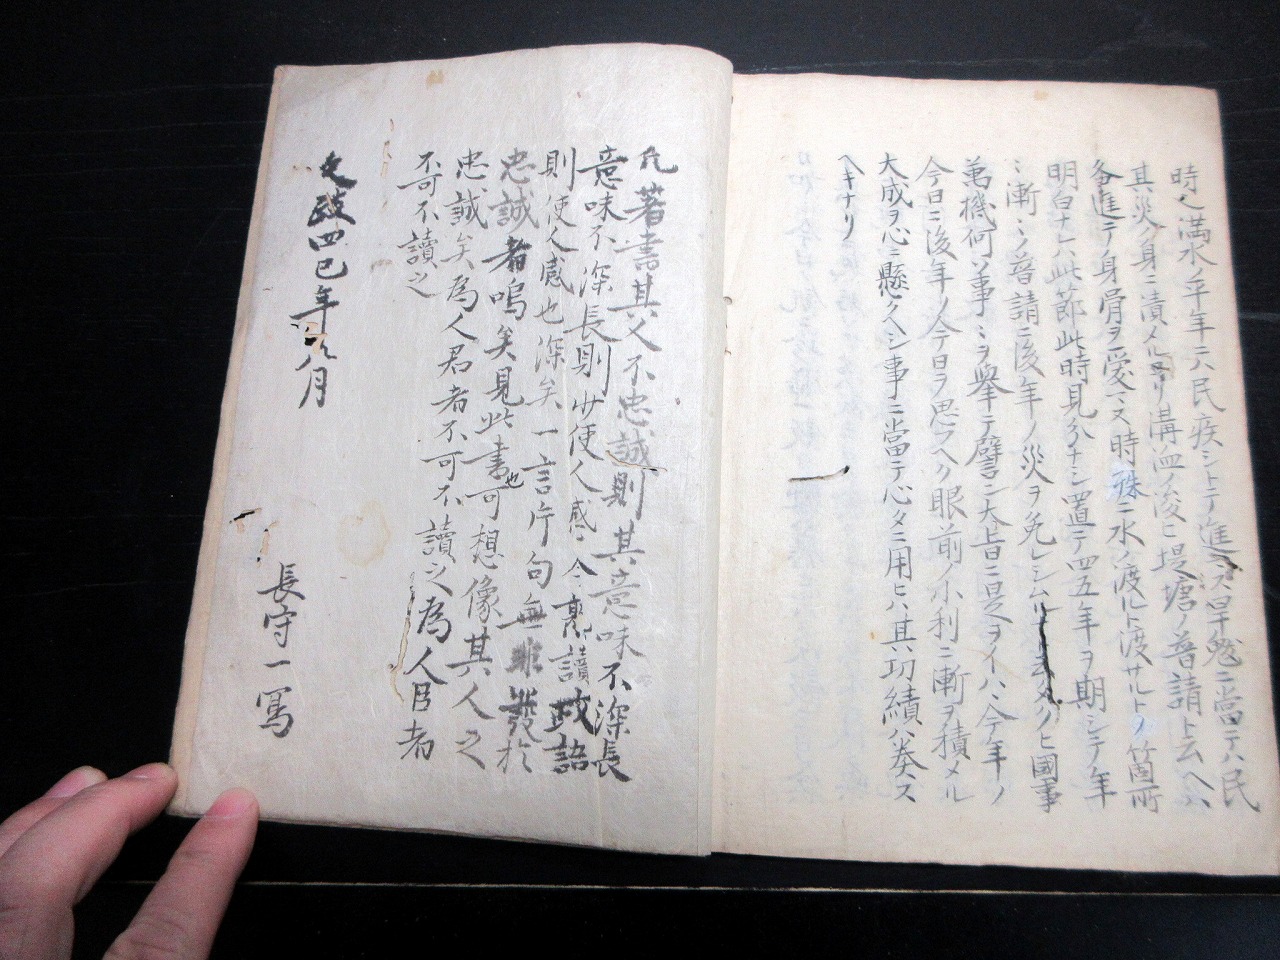 時ノ満水ノ年年ニハ民疾シトテ進ヘス旱魃ニ當テハ民
其災ノ身ニ漬メルヨリ溝洫ノ浚ヒ堤塘ノ普請ト云ヘハ
各進テ身骨ヲ愛マス時殊ニ水ノ渡ルト渡サルトノ箇所
明白ナレハ此節此時見分ナシ置テ四五年ヲ期シテ年
ミ漸ミノ普請ニ後年ノ災ヲ免レシムル
國事
萬機何ソ事ミヲ舉テ譬ン大旨ニ是ヲイハヽ今年ノ
今日ニ後年ノ今日ヲ思フヘク眼前ノ小利ニ漸ヲ積メル
大成ヲ心ニ懸クヘシ事ニ當テ心タニ用ヒハ其功績ハ券ス
ヘキナリ
凡著書其人不忠誠則其意味不深長
意味不深長則少使人感今熟讀政語
則使人感也深矣一言片句無非發於
忠誠者嗚矣見此書也可想像其人之
忠誠矣為人君者不可不讀之為人臣者
不可不讀之
文政四巳年八月
長守一寫